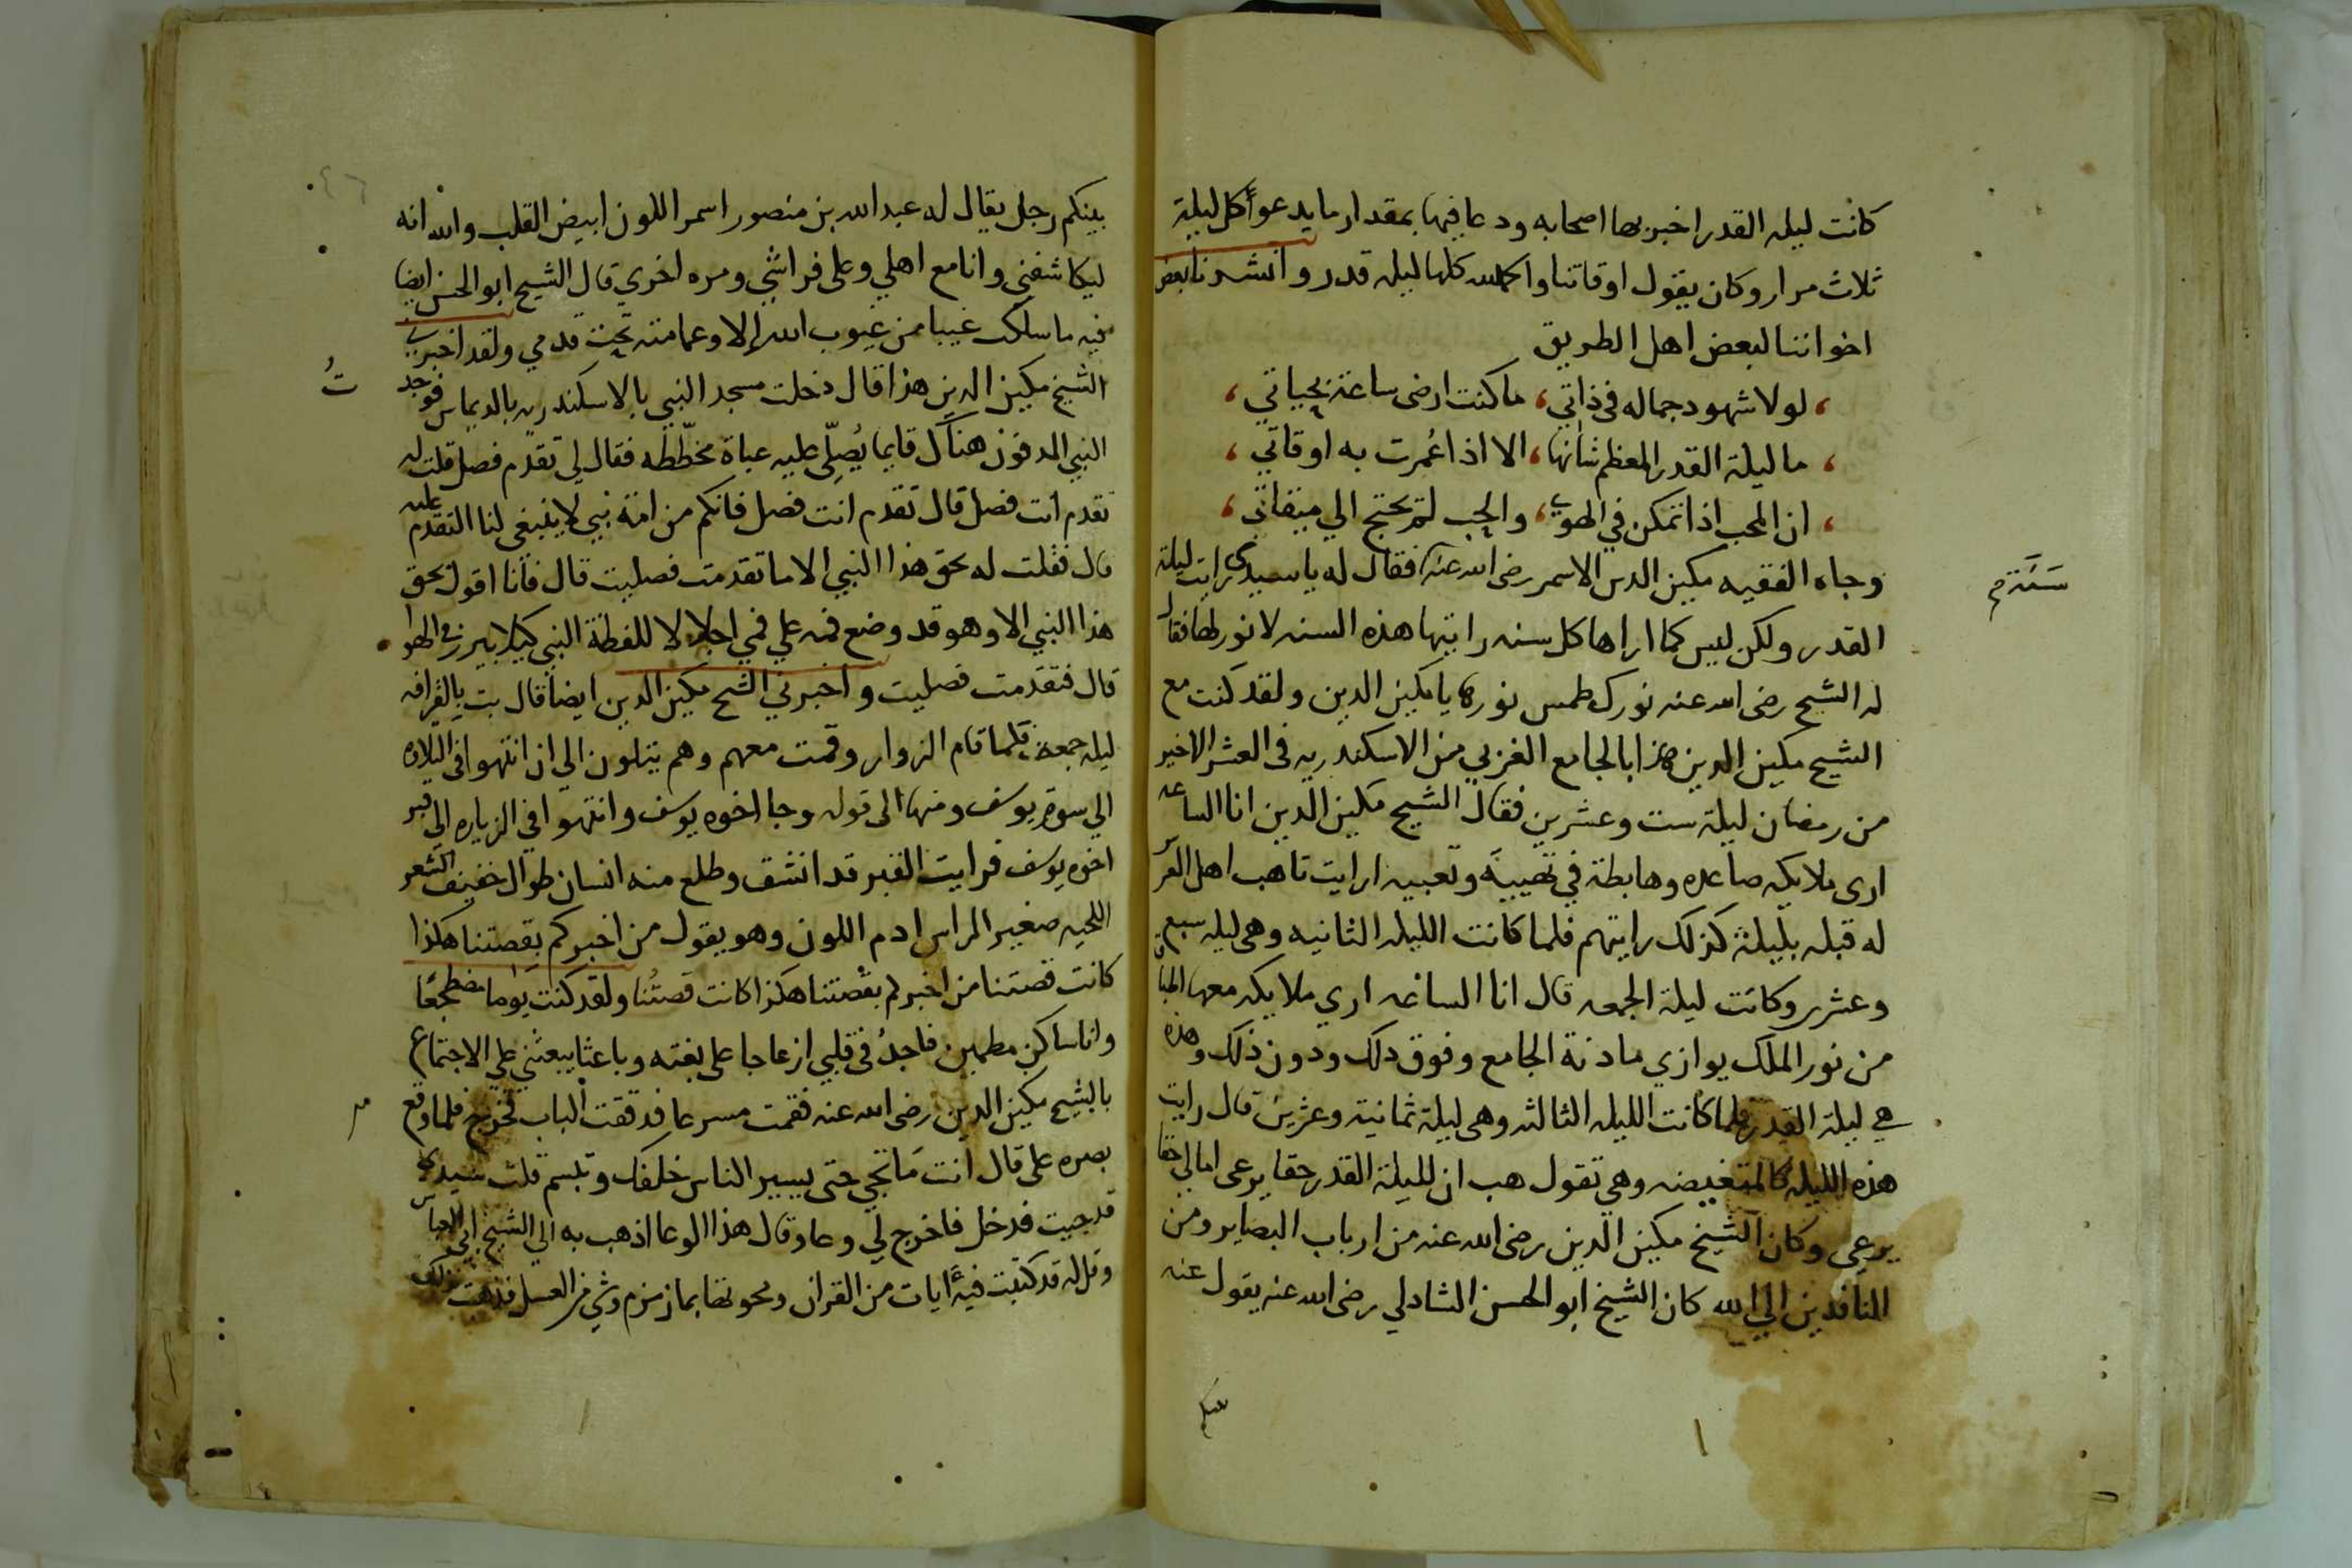 كانت ليله القدر اخبر بها اصحابه ودعا فيها بمقدار ما يدعوا كل ليلة
ثلاث مرار وكان يقول اوقاتنا والحمد لله كلها ليله قدر وانشدنا بعض
اخواننا لبعض اهل الطريق
لولا شهود جماله في ذاتي، ما كنت ارضى ساعة بحياتي،
ما ليلة القدر المعظم شانها، الا اذا عُمرت به اوقاتي،
ان المحب اذا تمكن في الهوي، والحب لم يحتج الي ميقاتي،
وجاه الفقيه مكين الدين الاسمر رضى الله عنه فقال له يا سيدي رايت ليلة
القدر ولكن ليس كما اراها كل سنه رايتها هذه السنه لا نور لها فقال
له الشيخ رضى الله عنه نورك طمس نورها يا مكين الدين ولقد كنت مع
الشيخ مكين الدين هذا بالجامع الغربي من الاسكندريه في العشر الاخير
من رمضان ليلة ست وعشرين فقال الشيخ مكين الدين انا الساعه
ارى ملايكه صاعده وهابطة في تهيية وتعبيه ارايت تاهب اهل العرس
له قبله بليلة كذلك رايتهم فلما كانت الليله الثانيه وهي ليله سبع
وعشرين وكانت ليلة الجمعه قال انا الساعه اري ملايكه معها اطباق
من نور الملك يوازي ماذنة الجامع وفوق ذلك ودون ذلك وهذه
هي ليلة القدر فلما كانت الليله الثالثه وهي ليلة ثمانية وعشرين قال رايت
هذه الليله كالمتغيضه وهي تقول هب ان لليلة القدر حقا يرعى اما لي حقا
يرعى وكان الشيخ مكين الدين رضى الله عنه من ارباب البصاير ومن
النافدين الي الله كان الشيخ ابو الحسن الشادلي رضى الله عنه يقول عنه
بينكم رجل يقال له عبد الله بن منصور اسمر اللون ابيض القلب والله انه
ليكاشفني وانا مع اهلي وعلى فراشي ومره اخري قال الشيخ ابو الحسن ايضا
فيه ما سلك غيبا من غيوب الله إلا وعمامته تحت قدمي ولقد اخبرني
الشيخ مكين الدين هذا قال دخلت مسجد النبي بالاسكندريه بالديماس فوجدت
النبي المدفون هناك قايما يُصلّى عليه عباة مخطّطه فقال لي تقدم فصل قلت له
تقدم انت فصل قال تقدم انت فصل فانكم من امة نبي لا ينبغي لنا التقدم عليه
قال فقلت له بحق هذا النبي الا ما تقدمت فصليت قال فانا اقول بحق
هذا النبي الا وهو قد وضع فمه علي فمي اجلالا للفظة النبي كيلا يبرز في الهوا
قال فتقدمت فصليت واخبرني الشيخ مكين الدين ايضا قال بت بالقرافه
ليله جمعة فلما قام الزوار وقمت معهم وهم يتلون الي ان انتهوا في التلاوه
الي سورة يوسف ومنها الى قوله وجا اخوه يوسف وانتهوا في الزياره الي قبر
اخوه يوسف فرايت القبر قد انشق وطلع منه انسان طوال خفيف الشعر
اللحيه صغير الراس ادم اللون وهو يقول من اخبركم بقصتنا هكذا
كانت قصتنا من اخبركم بقصتنا هكذا كانت قصتُنا ولقد كنت يوما مضطجعًا
وانا ساكن مطمين فاجدُ في قلبي ازعاجا على بغته وباعثا يبعثني علي الاجتماع
بالشيخ مكين الدين رضى الله عنه فقمت مسرعا فدققت الباب فخرج فلما وقع
بصره علي قال انت ما تجي حتى يسير الناس خلفك وتبسم قلت سيدي
قد جيت فدخل فاخرج لي وعا وقال هذا الوعا اذهب به الي الشيخ ابي العباس
وقل له قد كتبت فيه ايات من القران ومحوتها بماز مزم وشي من العسل فذهبت بذلك